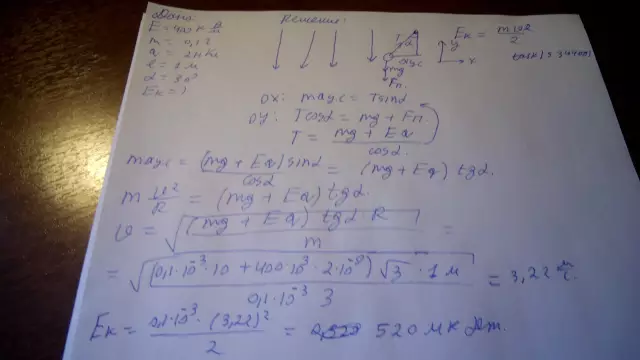 Дано:
E = 400 К В/м
m = 0,1 г
q = 2 нКл
l = 1 м
α = 30°
Eк = ?
Решение:
T α aц.с
mg
Fп.
y
x
Eк = mυ²/2
ox: maц.с = Tsinα
oy: Tcosα = mg + Fп.
T = (mg + Eq)/cosα
maц.с = (mg + Eq) sinα/cosα = (mg + Eq) tgα
m υ²/R = (mg + Eq) tgα.
υ = √((mg + Eq) tgα R/m) =
= √((0,1·10⁻³·10 + 400·10³·2·10⁻⁹) √3 · 1 м/0,1·10⁻³ 3) = 3,22 м/с.
Eк = 0,1·10⁻³ · (3,22)²/2 = 520 мк Дж.